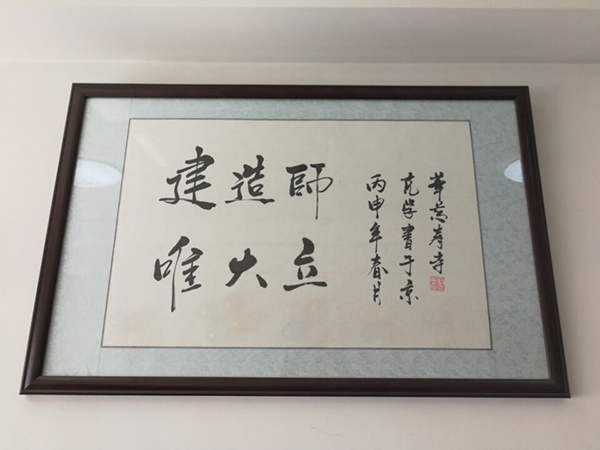 建造師
唯大立
丙申年春月
克学書于京
華萬寿寺